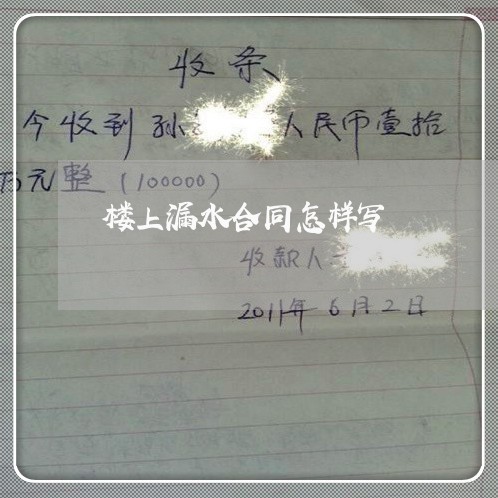 收条
今收到孙 人民币壹拾
万元整（100000）
楼上漏水合同怎样写
收款人
2011年6月2日